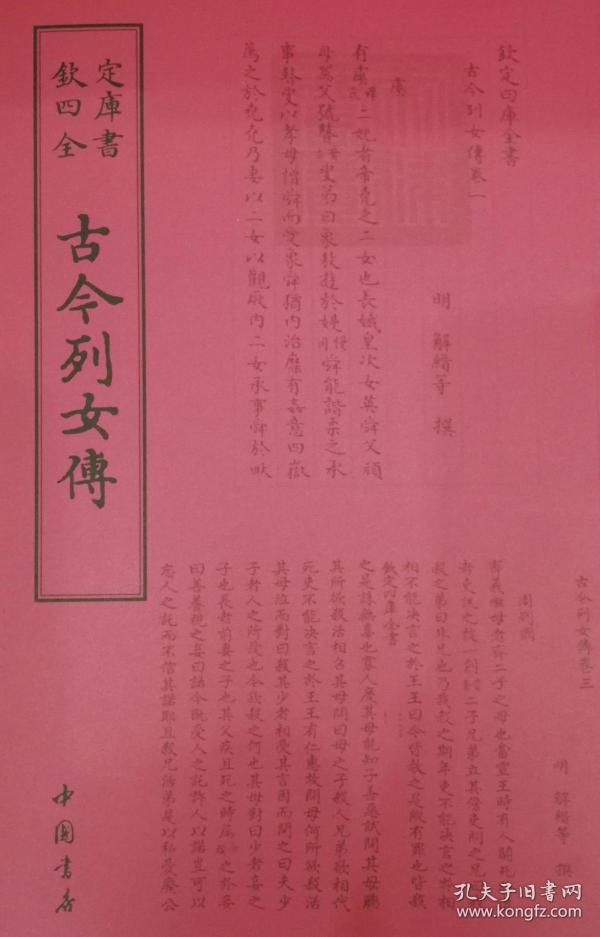 欽定四庫全書
古今列女傳
中國書店
欽定四庫全書
古今列女傳卷一
明 解縉等 撰
虞
有虞二妃者帝堯之二女也長娥皇次女英舜父頑
母嚚父號瞽叟弟曰象敖遊於嫚舜能諧柔之承
事瞽叟以孝母憎舜而愛象舜猶內治靡有姦意四嶽
薦之於堯堯乃妻以二女以觀厥內二女承事舜於畎
古今列女傳卷三
明 解縉等 撰
周列國
齊義繼母者齊二子之母也當宣王時有人鬭死
者吏訊之被一創二子兄弟立其傍吏問之兄
殺之弟曰非兄也乃我殺之期年吏不能決言之於相
相不能決言之於王王曰今皆赦之是縱有罪也皆殺
欽定四庫全書
之是誅無辜也寡人度其母能知子善惡試問其母聽
其所欲殺活相召其母問曰母之子殺人兄弟欲相代
死吏不能決言之於王王有仁惠故問母何所欲殺活
其母泣而對曰殺其少者相受其言因而問之曰夫少
子者人之所愛也今欲殺之何也其母對曰少者妾之
子也長者前妻之子也其父疾且死之時屬之於妾
曰善養視之妾曰諾今既受人之託許人以諾豈可以
忘人之託而不信其諾耶且殺兄活弟是以私愛廢公
孔夫子旧书网
www.kongfz.com